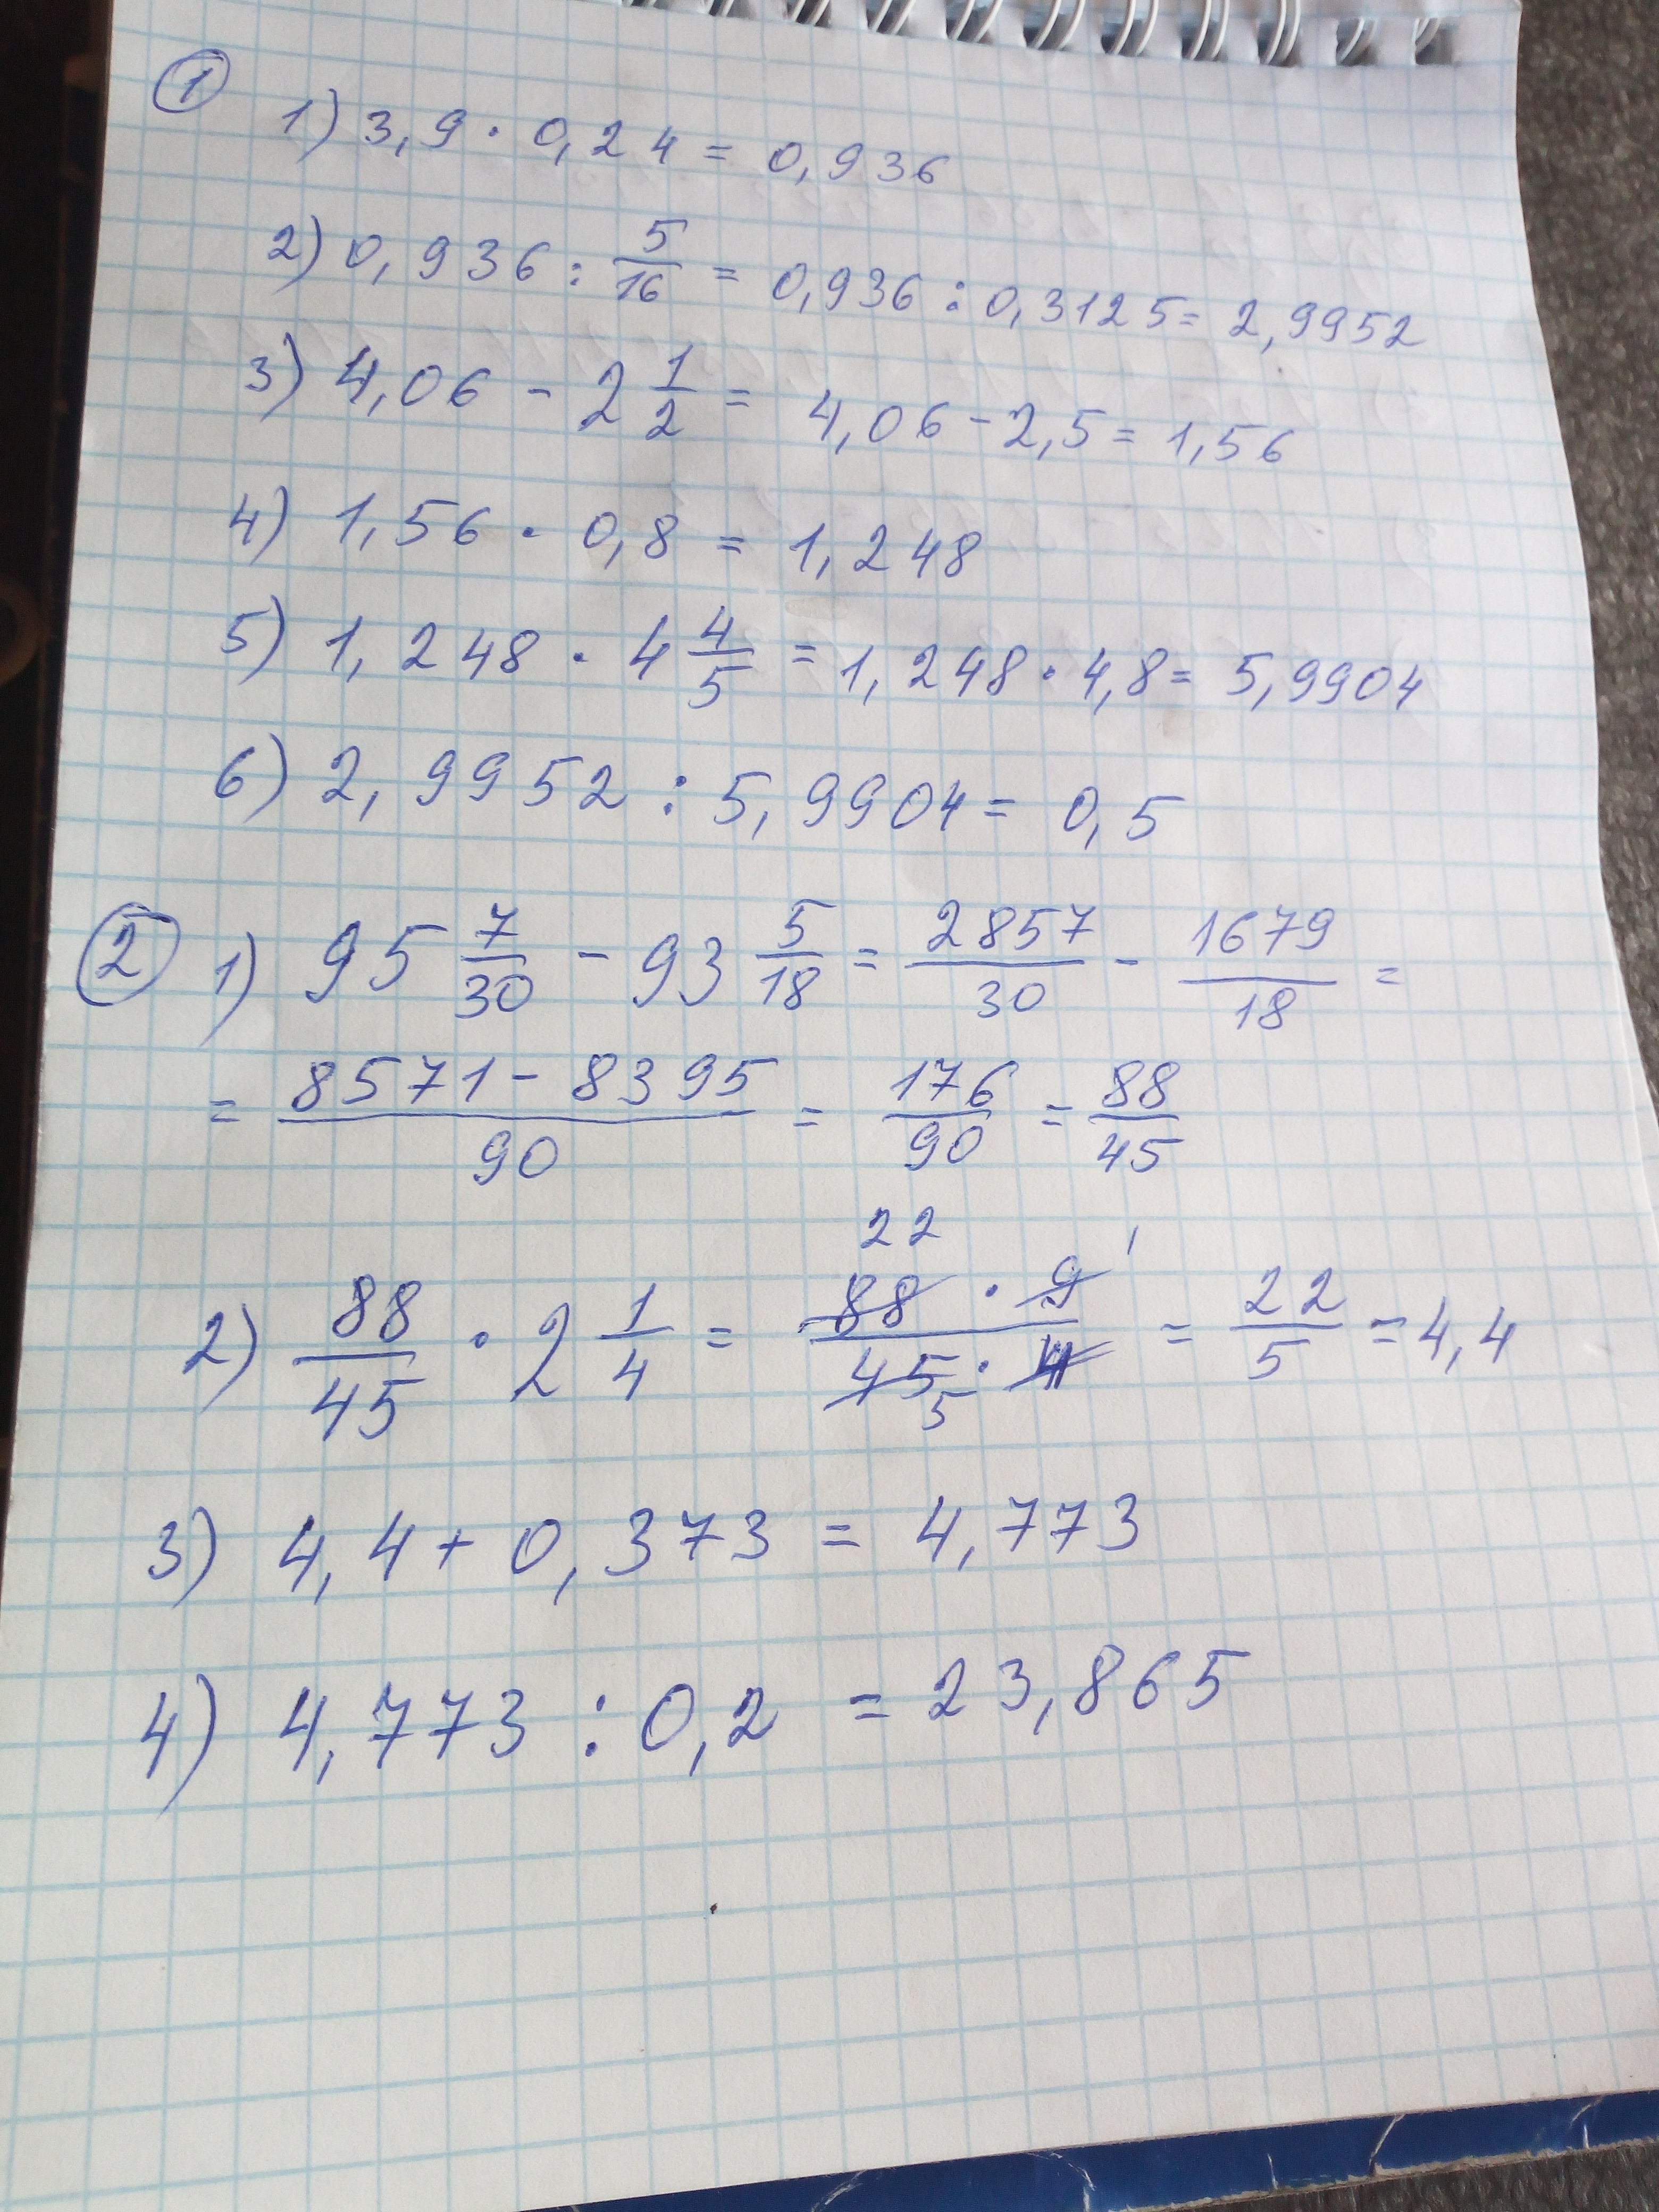 ①
1) 3,9 · 0,24 = 0,936
2) 0,936 : 5/16 = 0,936 : 0,3125 = 2,9952
3) 4,06 - 2 1/2 = 4,06 - 2,5 = 1,56
4) 1,56 · 0,8 = 1,248
5) 1,248 · 4 4/5 = 1,248 · 4,8 = 5,9904
6) 2,9952 : 5,9904 = 0,5
② 1) 95 7/30 - 93 5/18 = 2857/30 - 1679/18 =
= 8571 - 8395/90 = 176/90 = 88/45
22 1
2) 88/45 · 2 1/4 = 88 · 9/45 · 4 = 22/5 = 4,4
5
3) 4,4 + 0,373 = 4,773
4) 4,773 : 0,2 = 23,865